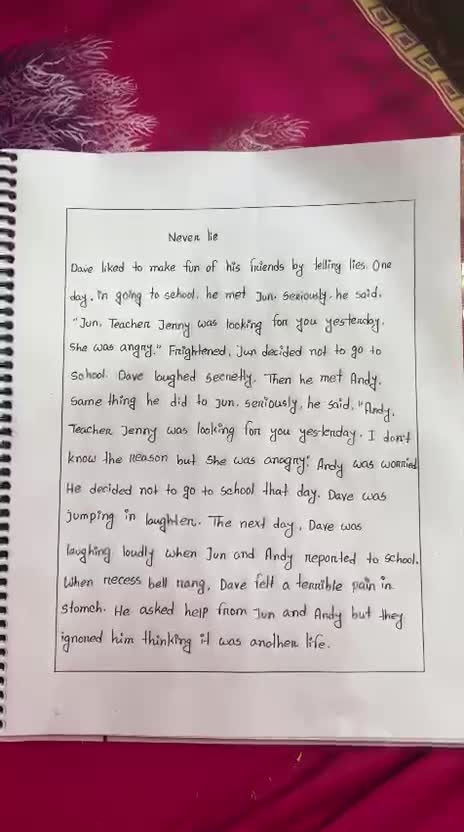 Never lie
Dave liked to make fun of his friends by telling lies. One
day, in going to school, he met Jun. Seriously, he said,
"Jun, Teacher Jenny was looking for you yesterday.
She was angry." Frightened, Jun decided not to go to
School. Dave laughed secretly. Then he met Andy.
Same thing he did to Jun. seriously, he said, "Andy,
Teacher Jenny was looking for you yesterday. I don't
know the reason but She was anagry." Andy was worried
He decided not to go to school that day. Dave was
jumping in laughter. The next day, Dave was
laughing loudly when Jun and Andy reported to school.
When recess bell rang, Dave felt a terrible pain in
stomch. He asked help from Jun and Andy but they
ignored him thinking it was another life.